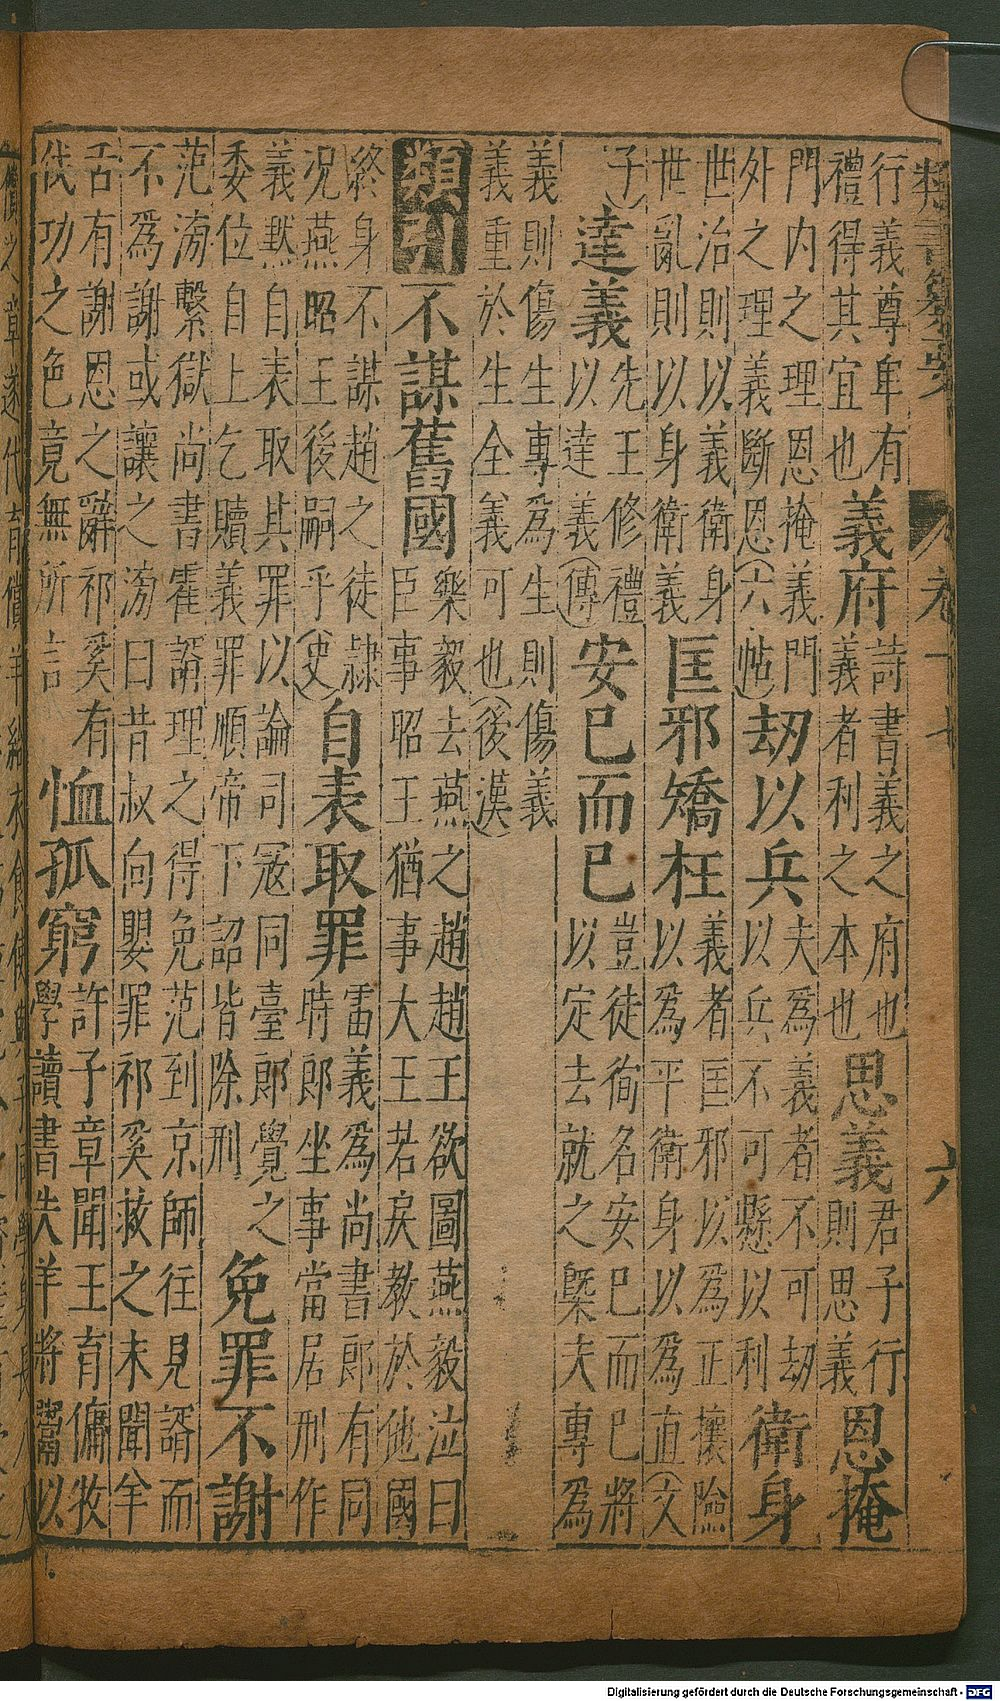 類書纂要
卷十七
六
行義尊卑有
禮得其宜也
義府
詩書義之府也
義者利之本也
思義
君子行
則思義
恩掩
門内之理恩掩義門
外之理義斷恩(六帖)
刼以兵
夫爲義者不可刼
以兵不可懸以利
衛身
世治則以義衛身
世亂則以身衛義
匡邪矯枉
義者匡邪以爲正攘險
以爲平衛身以爲直(文
子)
達義
先王修禮
以達義(傳)
安巳而巳
豈徒徇名安巳而巳將
以定去就之槩夫專爲
義則傷生專爲生則傷義
義重於生全義可也(後漢)
類引
不謀舊國
樂毅去燕之趙趙王欲圖燕毅泣曰
臣事昭王猶事大王若戾敎於他國
終身不謀趙之徒隷
况燕昭王後嗣乎(史)
自表取罪
雷義爲尚書郎有同
時郎坐事當居刑作
義默自表取其罪以論司冦同臺郎覺之
委位自上乞贖義罪順帝下詔皆除刑
免罪不謝
范滂繫獄尚書霍諝理之得免范到京師往見諝而
不爲謝或讓之滂曰昔叔向嬰罪祁奚救之未聞羊
舌有謝恩之辭祁奚有
伐功之色竟無所言
恤孤窮
許子章聞王育傭牧
學讀書失羊將鬻以
Digitalisierung gefördert durch die Deutsche Forschungsgemeinschaft - DFG